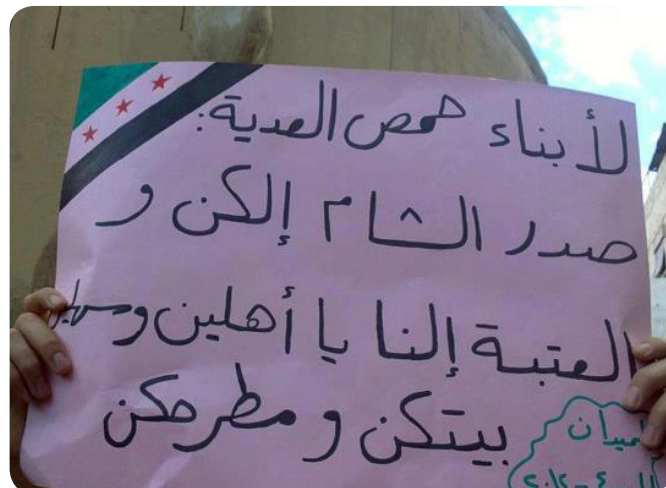 لأبناء حمص العدية:
صدر الشام إلكن و
العتبة إلنا يا أهلين وسهلين
بيتكن و مطرحكن
الميدان